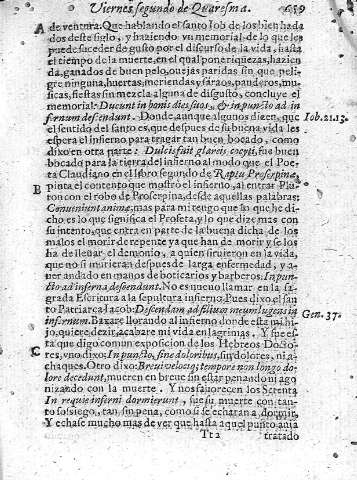 Viernes segundo de Quaresma. 659
A de ventura. Que hablando el santo Iob de los bien hada
dos deste siglo, y haziendo vn memorial de lo que les
puede suceder de gusto por el discurso de la vida, hasta
el tiempo de la muerte, en el qual pone riquezas, hazien
da, ganados de buen pelo, ouejas paridas sin que peli-
gre ninguna, huertas, meriendas y saraos, panderos, mu
sicas, fiestas sin mezcla alguna de disgusto, concluye el
memorial: Ducunt in bonis dies suos, & in puncto ad in
fernum descendunt. Donde, aunque algunos dizen, que Iob. 21. 13.
el sentido del santo es, que despues de su buena vida les
espera el infierno para tragar tan buen bocado, como
dixo en otra parte: Dulcis fuit glareis cocyti, fue buen
bocado para la tierra del infierno al modo que el Poe
ta Claudiano en el libro segundo de Raptu Proserpinę,
B pinta el contento que mostrò el infierno, al entrar Plu
ton con el robo de Proserpina, desde aquellas palabras:
Conueniunt animę, mas para mi tengo que lo que he di-
cho es lo que significa el Profeta, y lo que dize mas con
su intento, que entra en parte de la buena dicha de los
malos el morir de repente ya que han de morir y se los
ha de lleuar el demonio, a quien siruieron en la vida,
que no si murieran despues de larga enfermedad, y a-
uer andado en manos de boticarios y barberos. In pun-
cto ad inferna descendunt. No es nueuo llamar en la sa-
grada Escritura a la sepultura infierno. Pues dixo el san
to Patriarca Iacob: Descendam ad filium meum lugens in Gen. 37.
infernum. Baxarè llorando al infierno donde està mi hi-
jo, quiere dezir, acabarè mi vida en lagrimas, Y sue es-
C ta que digo comun exposicion de los Hebreos Docto-
res, vno dixo: In puncto, sine doloribus, sin dolores, ni a-
chaques. Otro dixo: Breui velociq; tempore non longo do-
lore decedunt, mueren en breue sin estar penando ni ago
nizando con la muerte. Y nos fauorecen los Setenta
In requie inferni dormierunt, fue su muerte con tan-
to sosiego, tan sin pena, como si se echaran a dormir.
Y echase mucho mas de ver que hasta aquel punto auia
Tt 2 tratado